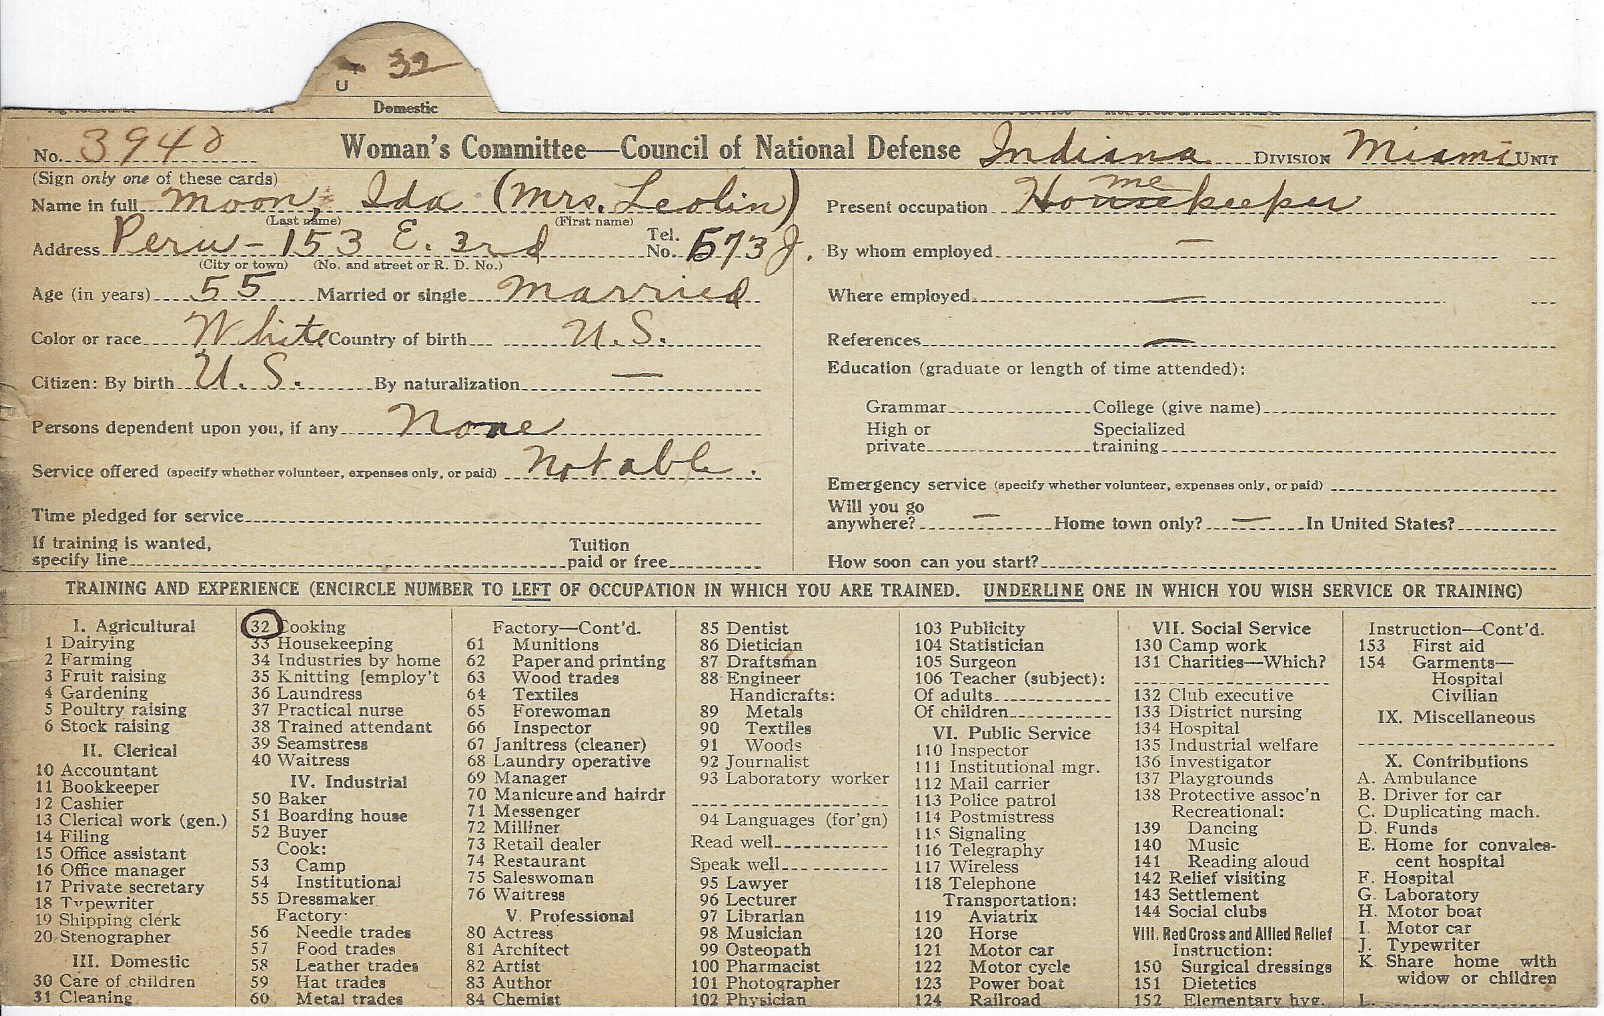 32
U
Domestic
No. 3948 Woman's Committee—Council of National Defense Indiana DIVISION Miami UNIT
(Sign only one of these cards)
Name in full Moon, Ida (Mrs. Leolin)
(Last name) (First name)
Address Peru - 153 E. 3rd Tel. No. 573 J.
(City or town) (No. and street or R. D. No.)
Age (in years) 55 Married or single Married
Color or race White Country of birth U. S.
Citizen: By birth U. S. By naturalization —
Persons dependent upon you, if any None
Service offered (specify whether volunteer, expenses only, or paid) Not able.
Time pledged for service
If training is wanted,
specify line
Tuition
paid or free
Present occupation Homekeeper
By whom employed —
Where employed —
References —
Education (graduate or length of time attended):
Grammar College (give name)
High or
private
Specialized
training
Emergency service (specify whether volunteer, expenses only, or paid)
Will you go
anywhere? — Home town only? — In United States?
How soon can you start?
TRAINING AND EXPERIENCE (ENCIRCLE NUMBER TO LEFT OF OCCUPATION IN WHICH YOU ARE TRAINED. UNDERLINE ONE IN WHICH YOU WISH SERVICE OR TRAINING)
I. Agricultural
1 Dairying
2 Farming
3 Fruit raising
4 Gardening
5 Poultry raising
6 Stock raising
II. Clerical
10 Accountant
11 Bookkeeper
12 Cashier
13 Clerical work (gen.)
14 Filing
15 Office assistant
16 Office manager
17 Private secretary
18 Typewriter
19 Shipping clerk
20 Stenographer
III. Domestic
30 Care of children
31 Cleaning
32 Cooking
33 Housekeeping
34 Industries by home
35 Knitting [employ't
36 Laundress
37 Practical nurse
38 Trained attendant
39 Seamstress
40 Waitress
IV. Industrial
50 Baker
51 Boarding house
52 Buyer
Cook:
53 Camp
54 Institutional
55 Dressmaker
Factory:
56 Needle trades
57 Food trades
58 Leather trades
59 Hat trades
60 Metal trades
Factory—Cont'd.
61 Munitions
62 Paper and printing
63 Wood trades
64 Textiles
65 Forewoman
66 Inspector
67 Janitress (cleaner)
68 Laundry operative
69 Manager
70 Manicure and hairdr
71 Messenger
72 Milliner
73 Retail dealer
74 Restaurant
75 Saleswoman
76 Waitress
V. Professional
80 Actress
81 Architect
82 Artist
83 Author
84 Chemist
85 Dentist
86 Dietician
87 Draftsman
88 Engineer
Handicrafts:
89 Metals
90 Textiles
91 Woods
92 Journalist
93 Laboratory worker
94 Languages (for'gn)
Read well
Speak well
95 Lawyer
96 Lecturer
97 Librarian
98 Musician
99 Osteopath
100 Pharmacist
101 Photographer
102 Physician
103 Publicity
104 Statistician
105 Surgeon
106 Teacher (subject):
Of adults
Of children
VI. Public Service
110 Inspector
111 Institutional mgr.
112 Mail carrier
113 Police patrol
114 Postmistress
115 Signaling
116 Telegraphy
117 Wireless
118 Telephone
Transportation:
119 Aviatrix
120 Horse
121 Motor car
122 Motor cycle
123 Power boat
124 Railroad
VII. Social Service
130 Camp work
131 Charities—Which?
132 Club executive
133 District nursing
134 Hospital
135 Industrial welfare
136 Investigator
137 Playgrounds
138 Protective assoc'n
Recreational:
139 Dancing
140 Music
141 Reading aloud
142 Relief visiting
143 Settlement
144 Social clubs
VIII. Red Cross and Allied Relief
Instruction:
150 Surgical dressings
151 Dietetics
152 Elementary hyg.
Instruction—Cont'd.
153 First aid
154 Garments—
Hospital
Civilian
IX. Miscellaneous
X. Contributions
A. Ambulance
B. Driver for car
C. Duplicating mach.
D. Funds
E. Home for convales-
cent hospital
F. Hospital
G. Laboratory
H. Motor boat
I. Motor car
J. Typewriter
K Share home with
widow or children
L.